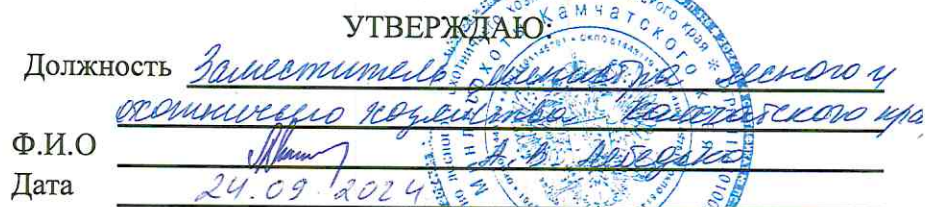 УТВЕРЖДАЮ:
Должность Заместитель министра лесного и
охотничьего хозяйства Камчатского кра
Ф.И.О А.В.
Дата 24.09.2024